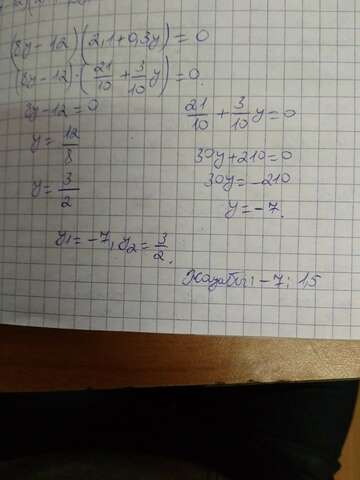 (8y-12)(2,1+0,3y)=0
(8y-12)·(21/10+3/10y)=0
8y-12=0
y=12/8
y=3/2
21/10+3/10y=0
30y+210=0
30y=-210
y=-7.
y₁=-7, y₂=3/2.
Жауабы: -7; 1,5